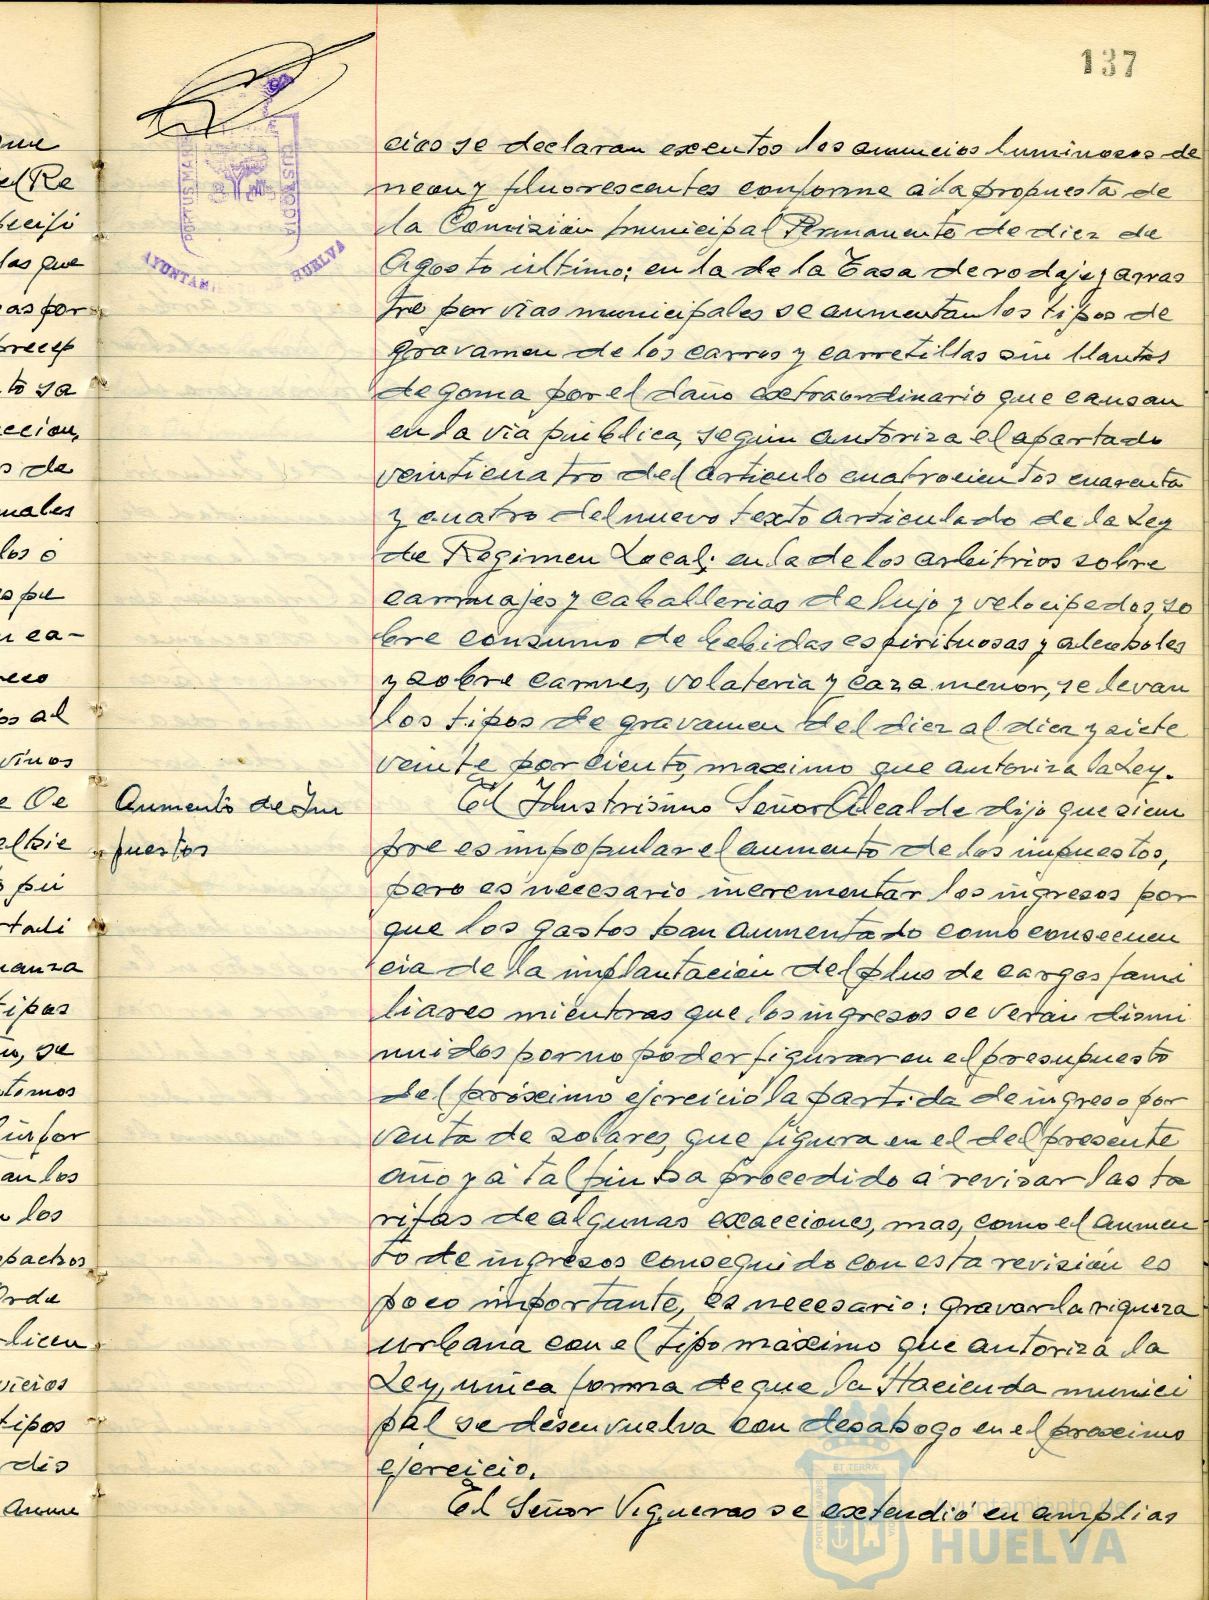 137
cios se declaran exentos los anuncios luminosos de
neon y fluorescentes conforme a la propuesta de
la Comisión municipal Permanente de diez de
Agosto último; en la de la Tasa de rodaje y arras
tre por vias municipales se aumentan los tipos de
gravamen de los carros y carretillas sin llantas
de goma por el daño extraordinario que causan
en la via pública, según autoriza el apartado
veinticuatro del articulo cuatrocientos cuarenta
y cuatro del nuevo texto articulado de la Ley
de Regimen Local; en la de los arbitrios sobre
carruajes y caballerias de lujo y velocipedos, so
bre consumo de bebidas espirituosas y alcoholes
y sobre carnes, volateria y caza menor, se elevan
los tipos de gravamen del diez al diez y siete
veinte por ciento, maximo que autoriza la Ley.
Aumento de Im
puestos
El Ilustrisimo Señor Alcalde dijo que siem
pre es impopular el aumento de los impuestos,
pero es necesario incrementar los ingresos por
que los gastos han aumentado como consecuen
cia de la implantación del plus de cargas fami
liares mientras que los ingresos se verán dismi
nuidos por no poder figurar en el presupuesto
del próximo ejercicio la partida de ingreso por
venta de solares, que figura en el del presente
año y á tal fin ha procedido á revisar las ta
rifas de algunas exacciones, mas, como el aumen
to de ingresos conseguido con esta revisión es
poco importante, es necesario: gravar la riqueza
urbana con el tipo máximo que autoriza la
Ley, única forma de que la Hacienda munici
pal se desenvuelva con desahogo en el proximo
ejercicio.
El Señor Vigueras se extendió en amplias
PORTUS MARIS
CUSTODIA
HUELVA
Ayuntamiento de
HUELVA